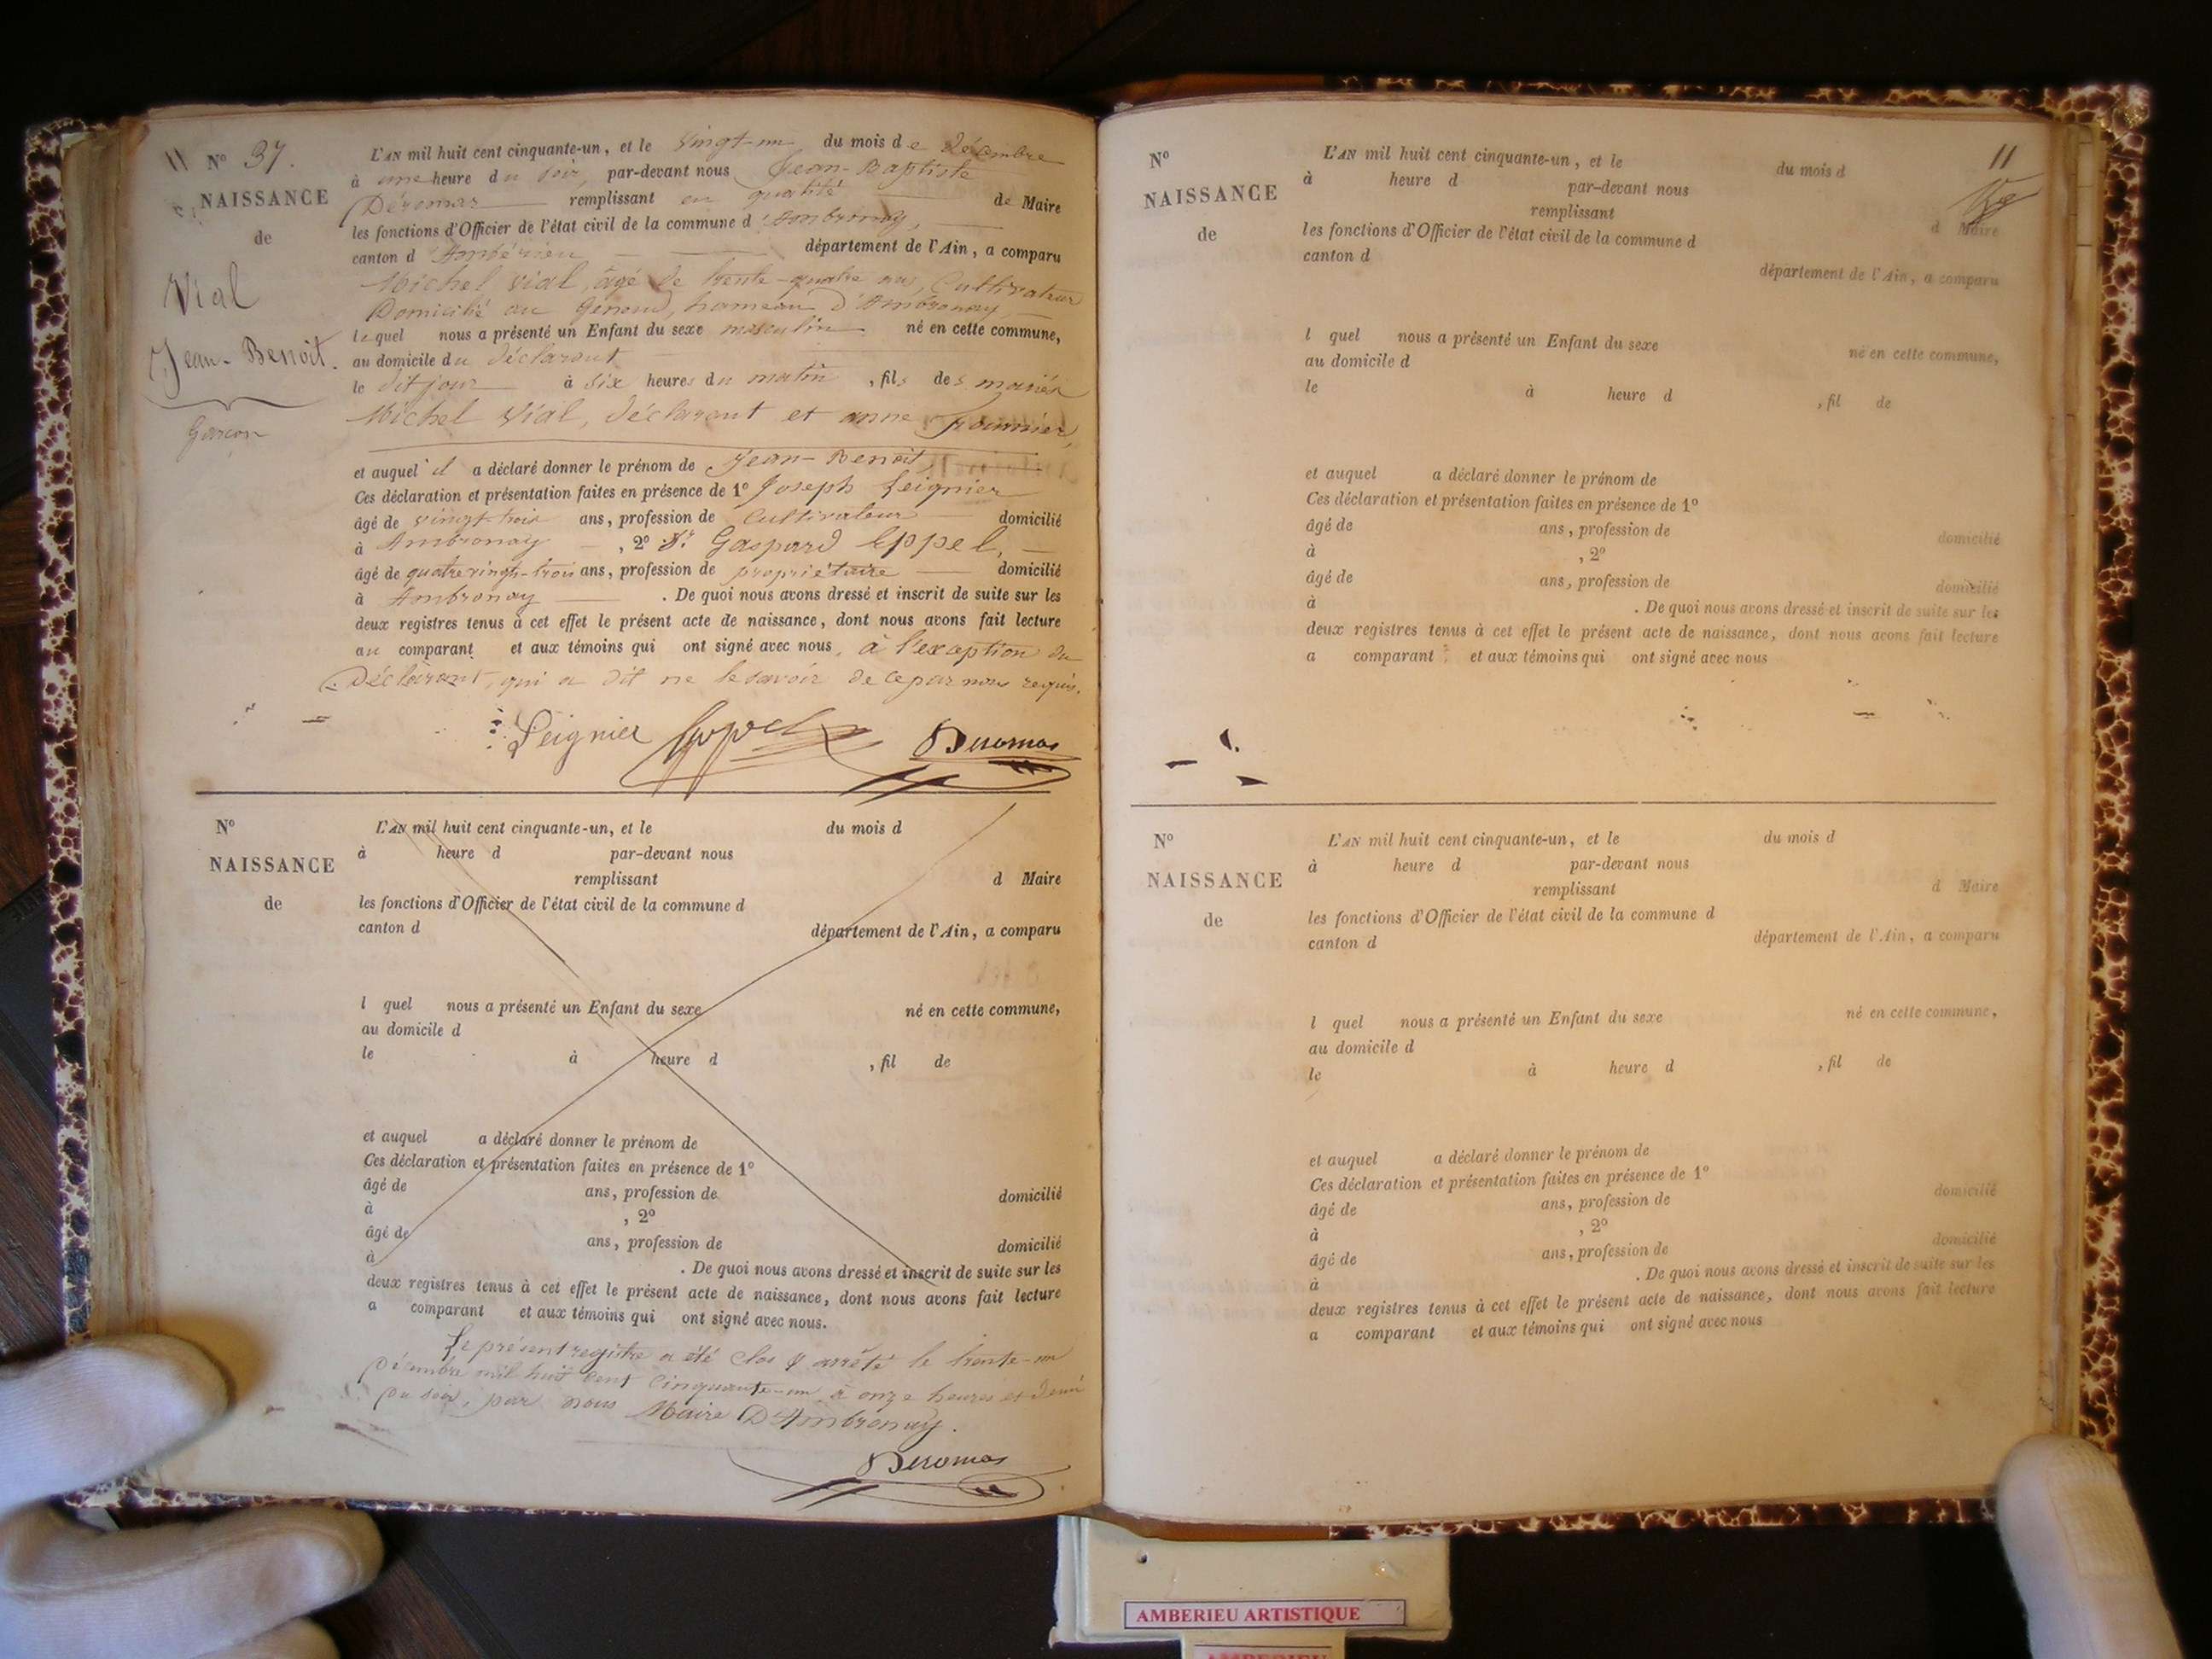 11
N° 37.
NAISSANCE
de
Vial
Jean-Benoît.
Garçon
L'AN mil huit cent cinquante-un, et le vingt-un du mois de Décembre
à une heure du soir, par-devant nous Jean-Baptiste
Deromas remplissant en qualité de Maire
les fonctions d'Officier de l'état civil de la commune d'Ambronay,
canton d'Ambérieu département de l'Ain, a comparu
Michel Vial, âgé de trente-quatre ans, Cultivateur
Domicilié au Genoud, hameau d'Ambronay,
lequel nous a présenté un Enfant du sexe masculin né en cette commune,
au domicile du déclarant
le dit jour à six heures du matin, fils des mariés
Michel Vial, déclarant et anne Fournier,
et auquel il a déclaré donner le prénom de Jean-Benoît
Ces déclaration et présentation faites en présence de 1° Joseph Leignier
âgé de vingt-trois ans, profession de Cultivateur domicilié
à Ambronay, 2° Sr Gaspard Eppel,
âgé de quatrevingt-trois ans, profession de propriétaire domicilié
à Ambronay. De quoi nous avons dressé et inscrit de suite sur les
deux registres tenus à cet effet le présent acte de naissance, dont nous avons fait lecture
au comparant et aux témoins qui ont signé avec nous, à l'exception du
Déclarant, qui a dit ne le savoir de ce par nous requis.
Leignier Eppel Deromas
N°
NAISSANCE
de
L'AN mil huit cent cinquante-un, et le du mois d
à heure d par-devant nous
remplissant d Maire
les fonctions d'Officier de l'état civil de la commune d
canton d département de l'Ain, a comparu
l quel nous a présenté un Enfant du sexe né en cette commune,
au domicile d
le à heure d , fil de
et auquel a déclaré donner le prénom de
Ces déclaration et présentation faites en présence de 1°
âgé de ans, profession de domicilié
à , 2°
âgé de ans, profession de domicilié
à . De quoi nous avons dressé et inscrit de suite sur les
deux registres tenus à cet effet le présent acte de naissance, dont nous avons fait lecture
a comparant et aux témoins qui ont signé avec nous.
Le présent registre a été clos & arrêté le trente-un
Décembre mil huit cent cinquante-un à onze heures et demi
du soir, par nous Maire D'Ambronay.
Deromas
11
N°
NAISSANCE
de
L'AN mil huit cent cinquante-un, et le du mois d
à heure d par-devant nous
remplissant d Maire
les fonctions d'Officier de l'état civil de la commune d
canton d département de l'Ain, a comparu
l quel nous a présenté un Enfant du sexe né en cette commune,
au domicile d
le à heure d , fil de
et auquel a déclaré donner le prénom de
Ces déclaration et présentation faites en présence de 1°
âgé de ans, profession de domicilié
à , 2°
âgé de ans, profession de domicilié
à . De quoi nous avons dressé et inscrit de suite sur les
deux registres tenus à cet effet le présent acte de naissance, dont nous avons fait lecture
a comparant et aux témoins qui ont signé avec nous
N°
NAISSANCE
de
L'AN mil huit cent cinquante-un, et le du mois d
à heure d par-devant nous
remplissant d Maire
les fonctions d'Officier de l'état civil de la commune d
canton d département de l'Ain, a comparu
l quel nous a présenté un Enfant du sexe né en cette commune,
au domicile d
le à heure d , fil de
et auquel a déclaré donner le prénom de
Ces déclaration et présentation faites en présence de 1°
âgé de ans, profession de domicilié
à , 2°
âgé de ans, profession de domicilié
à . De quoi nous avons dressé et inscrit de suite sur les
deux registres tenus à cet effet le présent acte de naissance, dont nous avons fait lecture
a comparant et aux témoins qui ont signé avec nous
AMBERIEU ARTISTIQUE
AMBERIEU